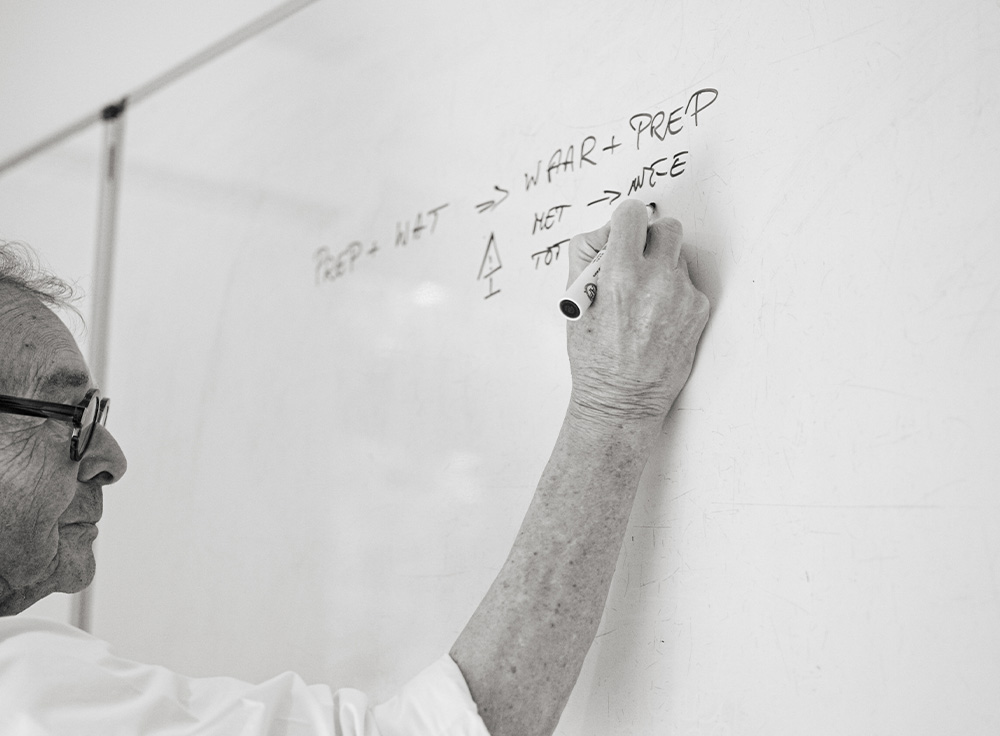 PREP + WAT => WAAR + PREP
! MET -> MEE
TOT